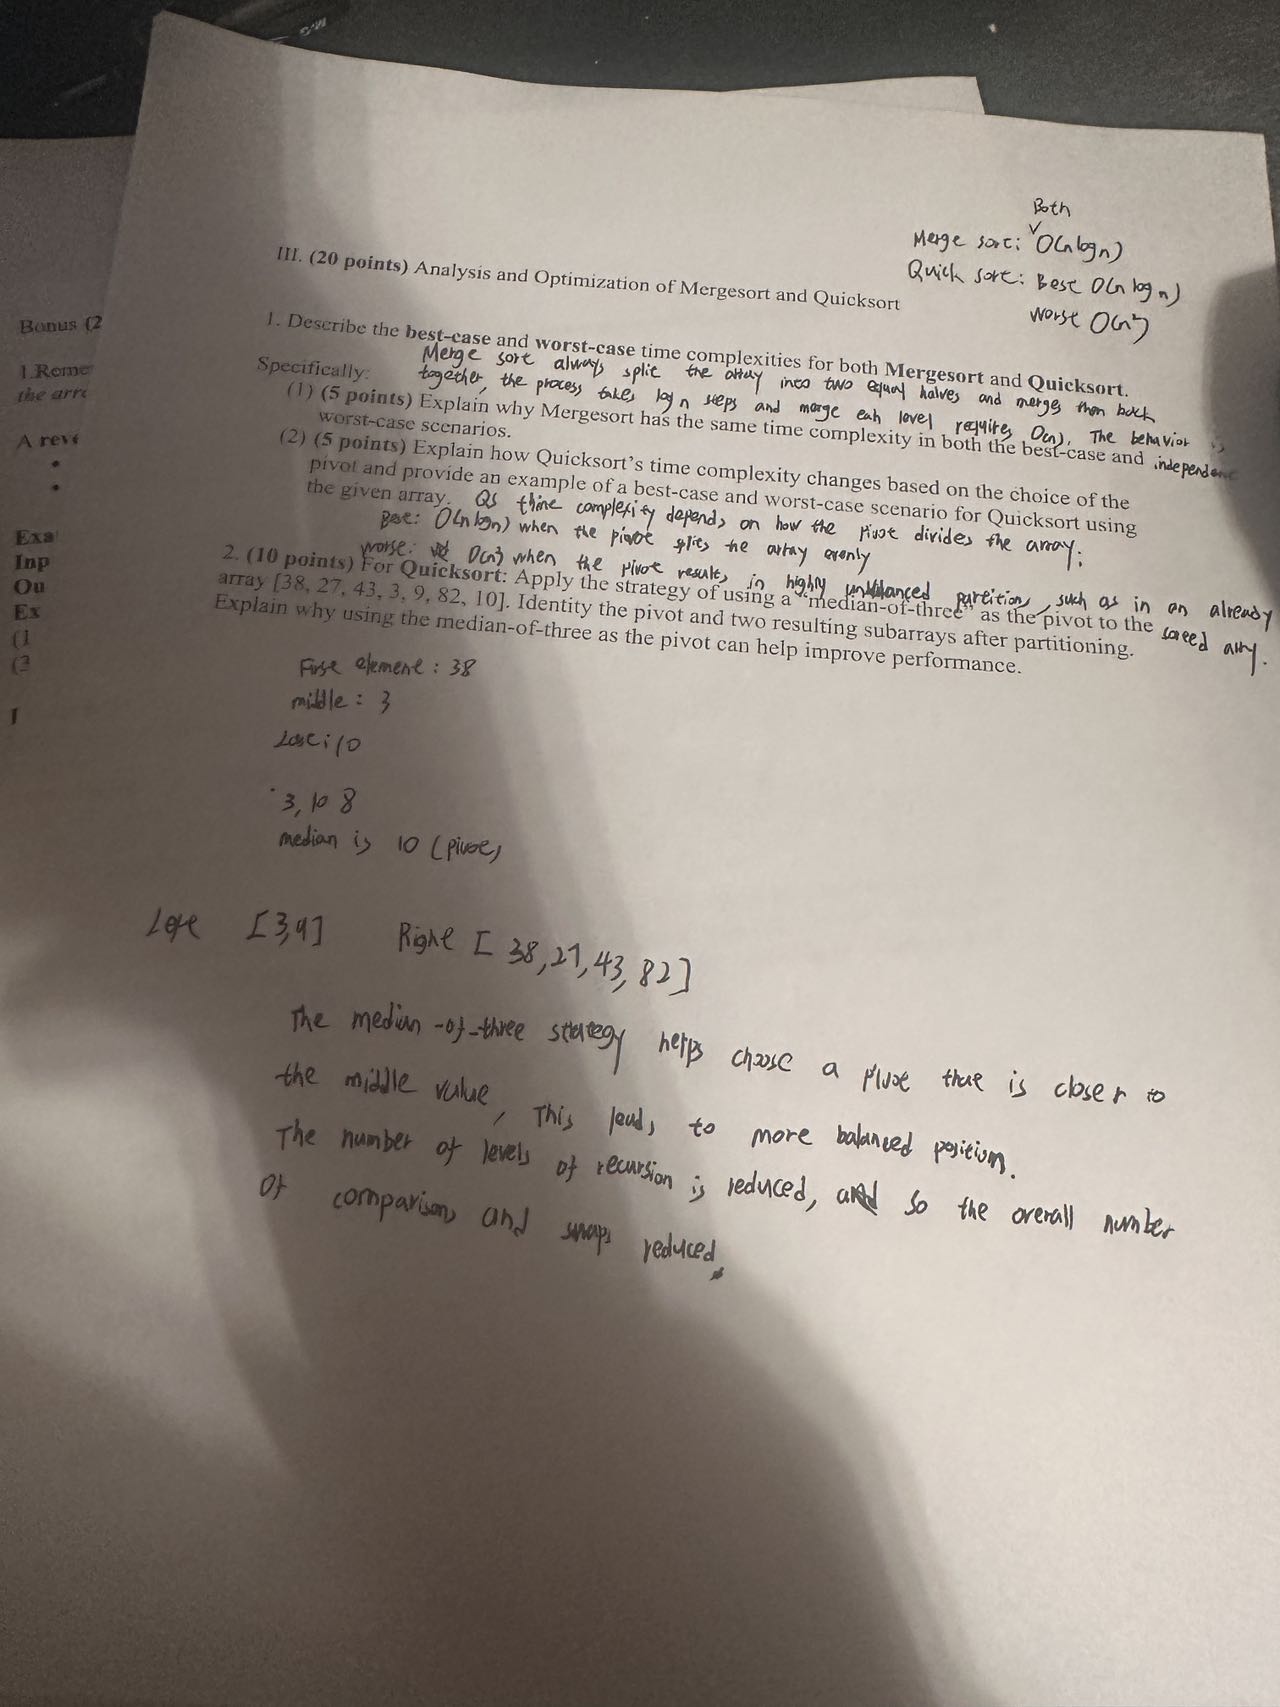 Both
Merge sort: O(n log n)
Quick sort: Best O(n log n)
Worse O(n²)
III. (20 points) Analysis and Optimization of Mergesort and Quicksort
1. Describe the best-case and worst-case time complexities for both Mergesort and Quicksort.
Merge sort always split the array into two equal halves and merges them back
Specifically:
together, the process takes log n steps and marge eah level requires O(n). The behavior is
independent
(1) (5 points) Explain why Mergesort has the same time complexity in both the best-case and
worst-case scenarios.
(2) (5 points) Explain how Quicksort's time complexity changes based on the choice of the
pivot and provide an example of a best-case and worst-case scenario for Quicksort using
the given array.
QS time complexity depends on how the pivot divides the array:
Best: O(n log n) when the pivot splits the array evenly
worse: O(n²) when the pivot results in highly unbalanced partitions, such as in an already
sorted array.
2. (10 points) For Quicksort: Apply the strategy of using a "median-of-three" as the pivot to the
array [38, 27, 43, 3, 9, 82, 10]. Identity the pivot and two resulting subarrays after partitioning.
Explain why using the median-of-three as the pivot can help improve performance.
First element: 38
middle: 3
Last: 10
3, 10 8
median is 10 (pivot)
Left [3,9] Right [38,27,43,82]
The median-of-three strategy helps choose a pivot that is closer to
the middle value, This leads to more balanced position.
The number of levels of recursion is reduced, and so the overall number
of comparisons and swaps reduced.
Bonus (2
1.Reme
the arra
A reve
•
•
Exa
Inp
Ou
Ex
(1
(3